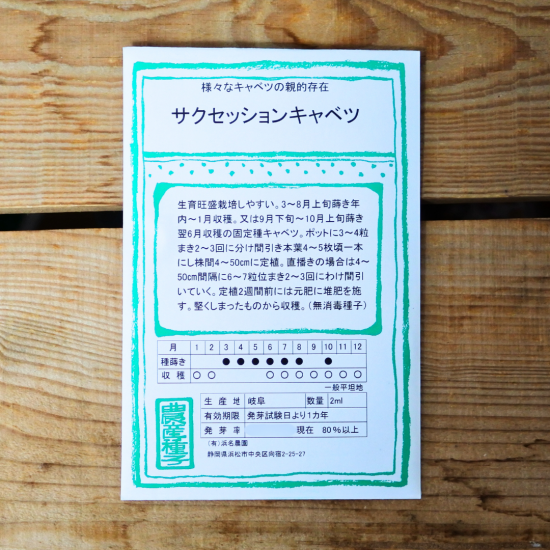 様々なキャベツの親的存在
サクセッションキャベツ
生育旺盛栽培しやすい。3〜8月上旬蒔き年
内〜1月収穫。又は9月下旬〜10月上旬蒔き
翌6月収穫の固定種キャベツ。ポットに3〜4粒
まき2〜3回に分け間引き本葉4〜5枚頃一本
にし株間4〜50cmに定植。直播きの場合は4〜
50cm間隔に6〜7粒位まき2〜3回にわけ間引
いていく。定植2週間前には元肥に堆肥を施
す。堅くしまったものから収穫。（無消毒種子）
月 1 2 3 4 5 6 7 8 9 10 11 12
種蒔き ● ● ● ● ● ● ●
収穫 ○ ○ ○ ○ ○ ○ ○ ○ ○
一般平坦地
生産地 岐阜 数量 2ml
有効期限 発芽試験日より1カ年
発芽率 現在 80％以上
(有)浜名農園
静岡県浜松市中央区向宿2-25-27
農産種子